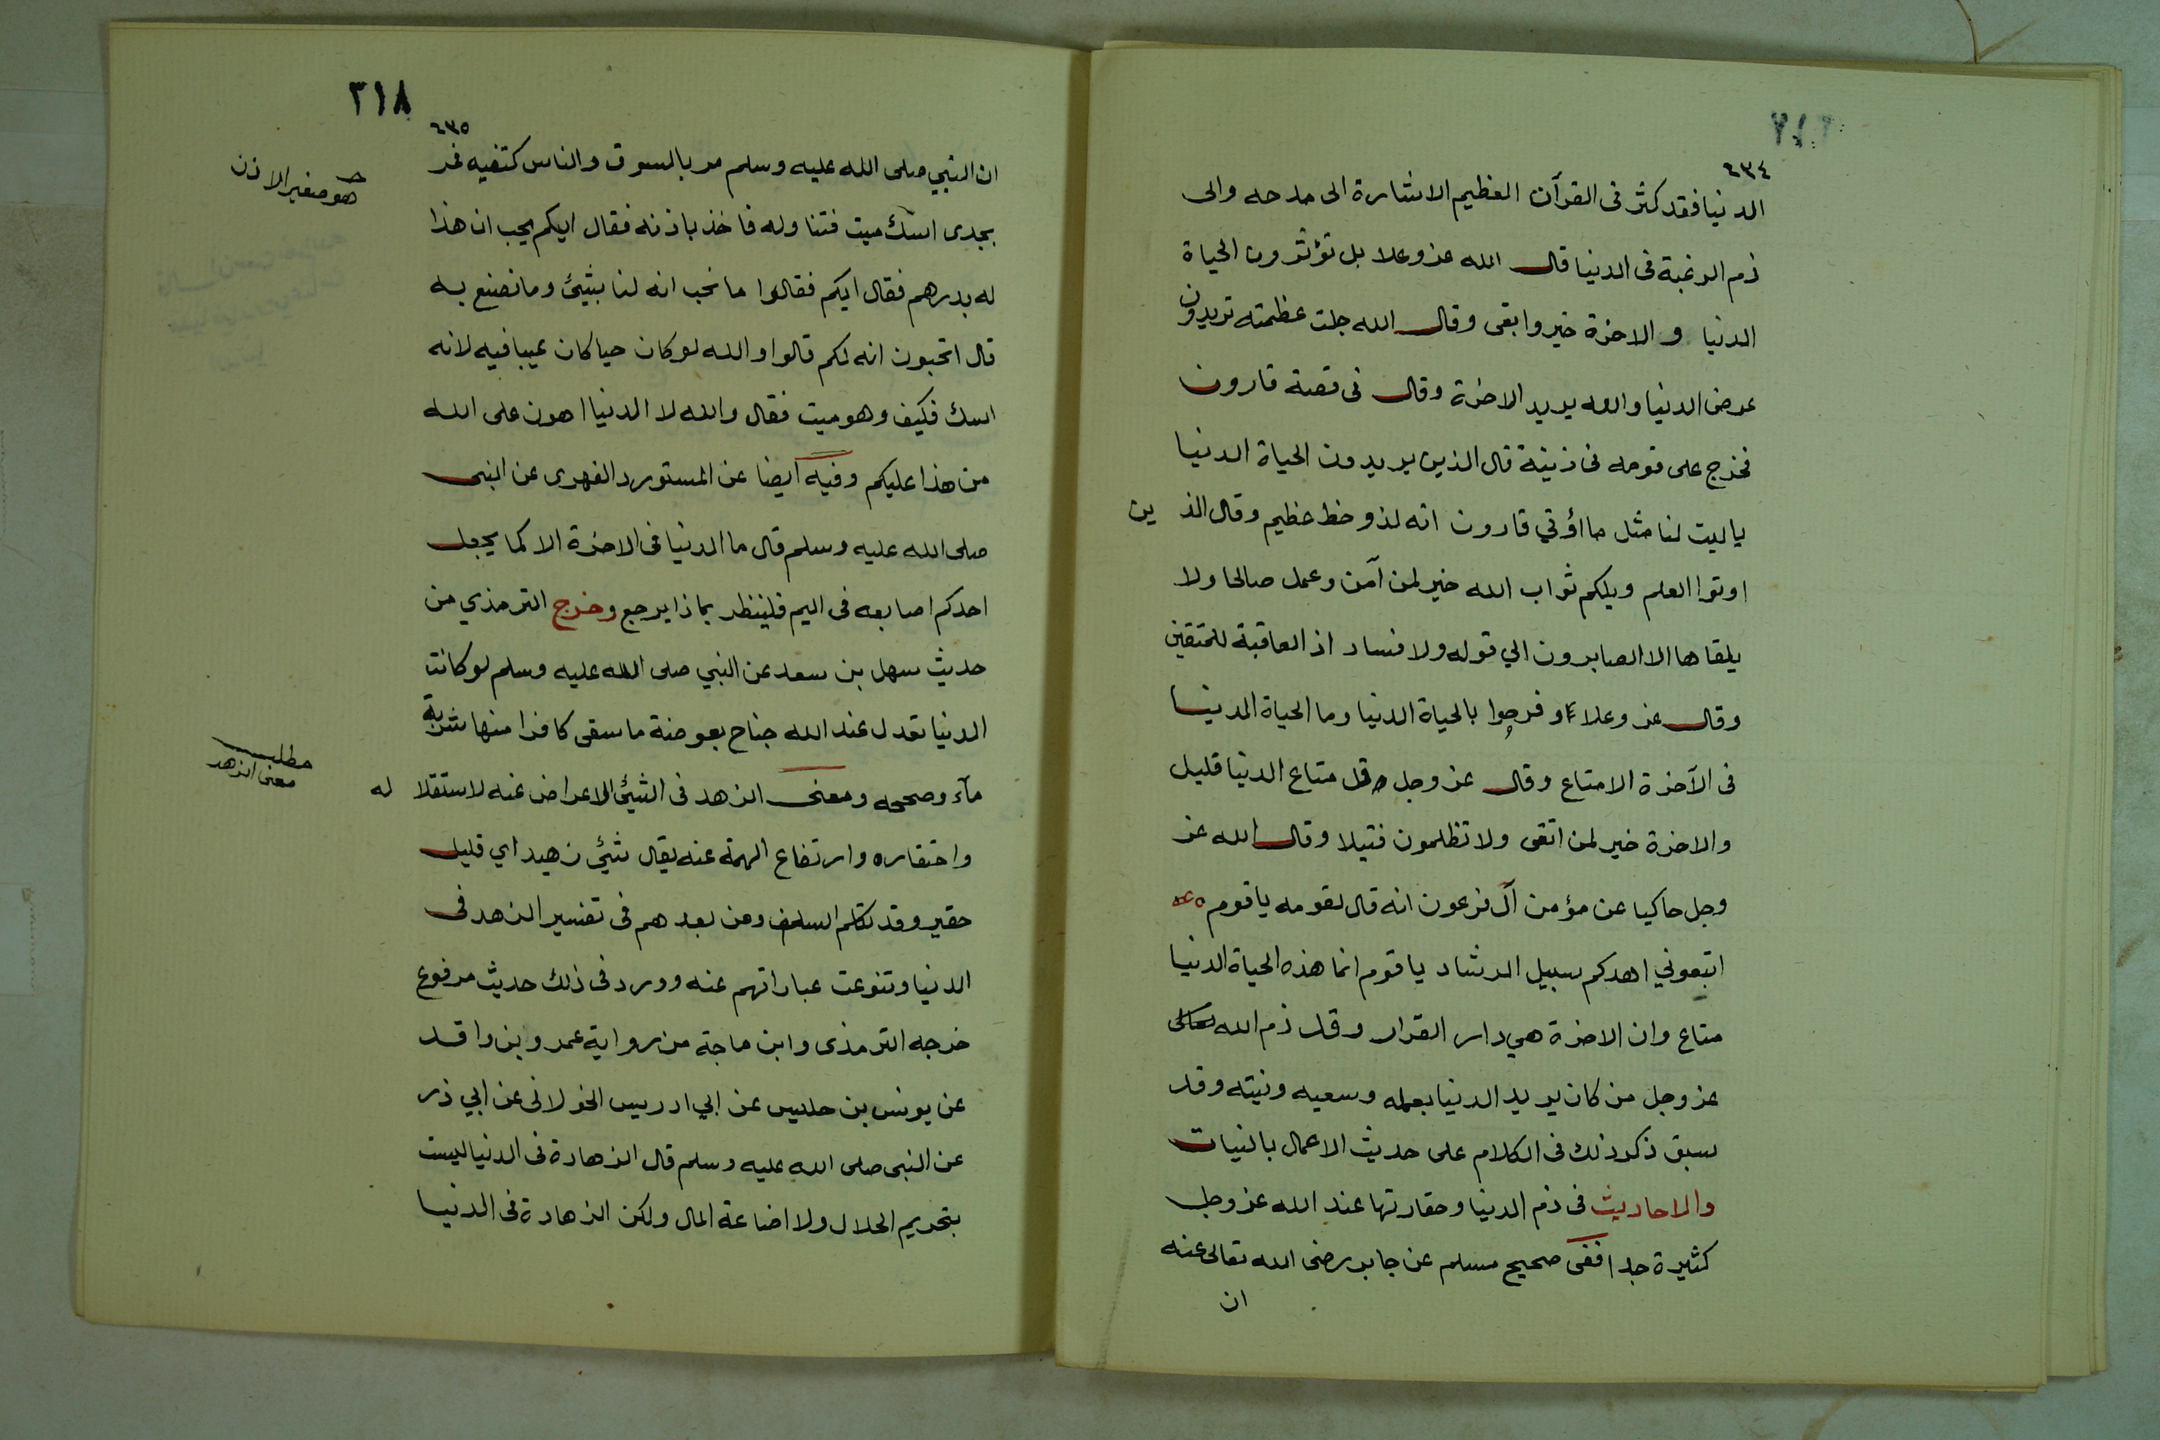 ٦٣٤
الدنيا فقد كثر فى القرآن العظيم الاشارة الى مدحه والى
ذم الرغبة فى الدنيا قال الله عز وعلا بل تؤثرون الحياة
الدنيا والاخرة خير وابقى وقال الله جلت عظمته تريدون
عرض الدنيا والله يريد الاخرة وقال فى قصة قارون
فخرج على قومه فى زينة قال الذين يريدون الحياة الدنيا
ياليت لنا مثل ما اؤتي قارون انه لذو حظ عظيم وقال الذين
اوتوا العلم ويلكم ثواب الله خير لمن آمن وعمل صالحا ولا
يلقاها الا الصابرون الي قوله ولا فساد اذ العاقبة للمتقين
وقال عز وعلا وفرحوا بالحياة الدنيا وما الحياة الدنيا
فى الآخرة الا متاع وقال عز وجل قل متاع الدنيا قليل
والاخرة خير لمن اتقى ولا تظلمون فتيلا وقال الله عز
وجل حاكيا عن مؤمن آل فرعون انه قال لقومه ياقوم
اتبعوني اهدكم سبيل الرشاد ياقوم انما هذه الحياة الدنيا
متاع وان الاخرة هي دار القرار وقد ذم الله تعالى
عز وجل من كان يريد الدنيا بعمله وسعيه ونيته وقد
سبق ذكر ذلك فى الكلام على حديث الاعمال بالنيات
والاحاديث فى ذم الدنيا وحقارتها عند الله عز وجل
كثيرة جدا ففى صحيح مسلم عن جابر رضى الله تعالى عنه
ان
٣١٨
٦٣٥
ان النبي صلى الله عليه وسلم مر بالسوق والناس كتفيه فمر
هو صغير الاذن
بجدى اسك ميت فتناوله فاخذ باذنه فقال ايكم يحب ان هذا
له بدرهم فقال ايكم فقالوا ما نحب انه لنا بشيئ وما نصنع به
قال اتحبون انه لكم قالوا والله لو كان حيا كان عيبا فيه لانه
اسك فكيف وهو ميت فقال والله لا الدنيا اهون على الله
من هذا عليكم وفيه ايضا عن المستورد الفهرى عن النبى
صلى الله عليه وسلم قال ما الدنيا فى الاخرة الا كما يجعل
احدكم اصابعه فى اليم فلينظر بماذا يرجع وخرج الترمذي من
حديث سهل بن سعد عن النبي صلى الله عليه وسلم لو كانت
الدنيا تعدل عند الله جناح بعوضة ما سقى كافرا منها شربة
مآء وصححه ومعنى الزهد فى الشيئ الاعراض عنه لاستقلاله
مطلب
معنى الزهد
واحتقاره وارتفاع الهمة عنه يقال شيئ زهيد اي قليل
حقير وقد تكلم السلف ومن بعدهم فى تفسير الزهد فى
الدنيا وتنوعت عباراتهم عنه وورد فى ذلك حديث مرفوع
خرجه الترمذى وابن ماجة من رواية عمرو بن واقد
عن يونس بن حلبس عن ابي ادريس الخولانى عن ابي ذر
عن النبى صلى الله عليه وسلم قال الزهادة فى الدنيا ليست
بتحريم الحلال ولا اضاعة المال ولكن الزهادة فى الدنيا